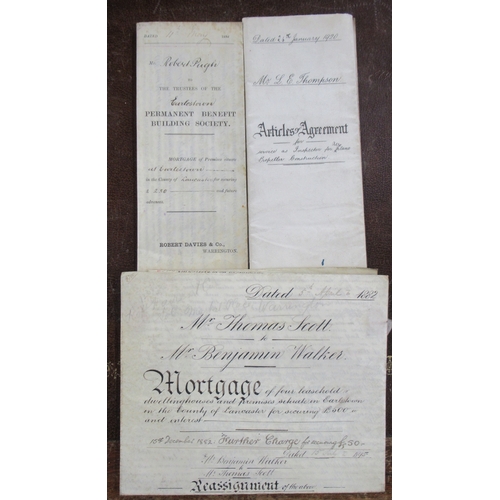 DATED
Mr Robert Pugh
TO
THE TRUSTEES OF THE
Earlestown
PERMANENT BENEFIT
BUILDING SOCIETY.
MORTGAGE of Premises situate
at Earlestown
in the County of Lancaster for securing
£ and future
advances.
ROBERT DAVIES & Co.,
WARRINGTON.
Dated 26th January 1920
Mr L. E. Thompson
Articles of Agreement
for
service as Inspector for
Propeller Construction
Dated 1st April 1882
Mr Thomas Scott
to
Mr Benjamin Walker
Mortgage of four leasehold
dwellinghouses and premises situate in Earlestown
in the County of Lancaster for securing £600
and interest
Further Charge for securing £50
Dated
Mr Benjamin Walker
to
Mr Thomas Scott
Reassignment of the above